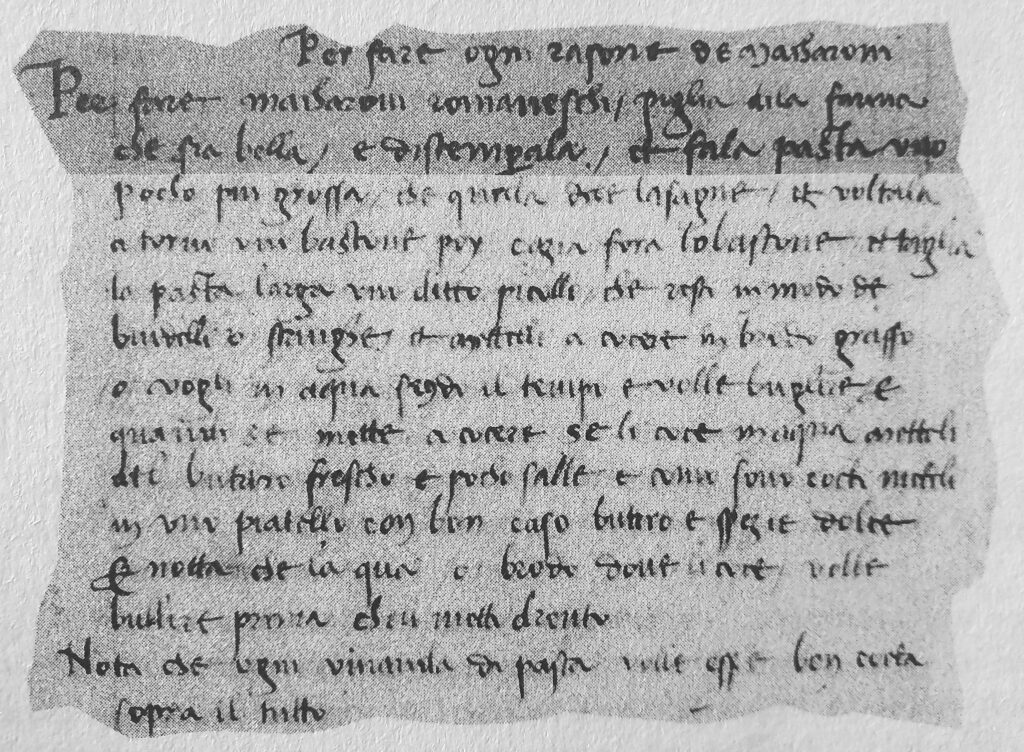 Per fare ogni rasone de Macharoni
Per fare macharoni romaneschi, piglia dila farina
che sia bella, e distemperala, et fala pasta uno
pocho piu grossa, che quella dele lasagne, et voltala
a torno uno bastone poy cazia fora lo bastone et taglia
la pasta larga uno ditto piccolo, che resti in modo de
et mettili a cocere in brodo grasso
o vogli in aqua segndo il tempo e volle bugilire, e
quando se mette a cocere se li coce in aqua mettili
del butiro frescho e pocho salle e como sono cocti mettili
in uno piatello con bon caso butiro e spezie dolce
E notta che la qua o brodo dove li coce, volle
bullire prima che li metti drento
Nota che ogni vivanda di pasta volle esser ben cocta
sopra il tutto